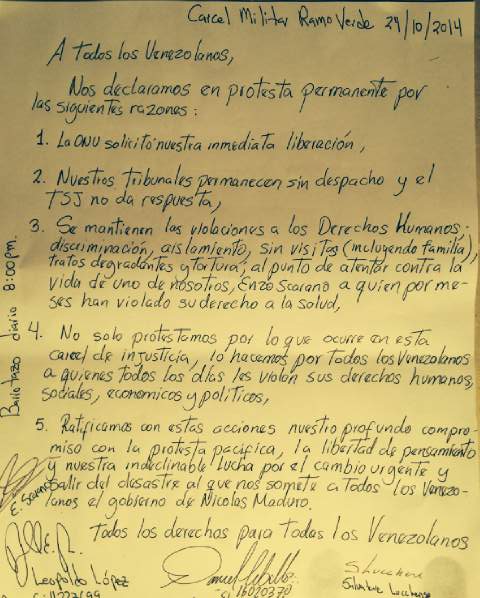 Carcel Militar Ramo Verde 29/10/2014
A Todos los Venezolanos,
Nos declaramos en protesta permanente por
las siguientes razones:
1. La ONU solicitó nuestra inmediata liberación,
2. Nuestros Tribunales permanecen sin despacho y el
TSJ no da respuesta,
3. Se mantienen las violaciones a los Derechos Humanos;
discriminación, aislamiento, sin visitas (incluyendo familia),
tratos degradantes y tortura; al punto de atentar contra la
vida de uno de nosotros, Enzo Scarano a quien por me-
ses han violado su derecho a la salud,
4. No solo protestamos por lo que ocurre en esta
carcel de injusticia, lo hacemos por Todos los Venezolanos
a quienes todos los días les violan sus derechos humanos,
sociales, economicos y políticos,
5. Ratificamos con estas acciones nuestro profundo compro-
miso con la protesta pacífica, la libertad de pensamiento
y nuestra indeclinable lucha por el cambio urgente y
salir del desastre al que nos somete a Todos los Venezo-
lanos el gobierno de Nicolas Maduro.
Todos los derechos para Todos los Venezolanos
Barrotazo diario 8:00pm.
E. Scarano
Leopoldo López
CI 16020370